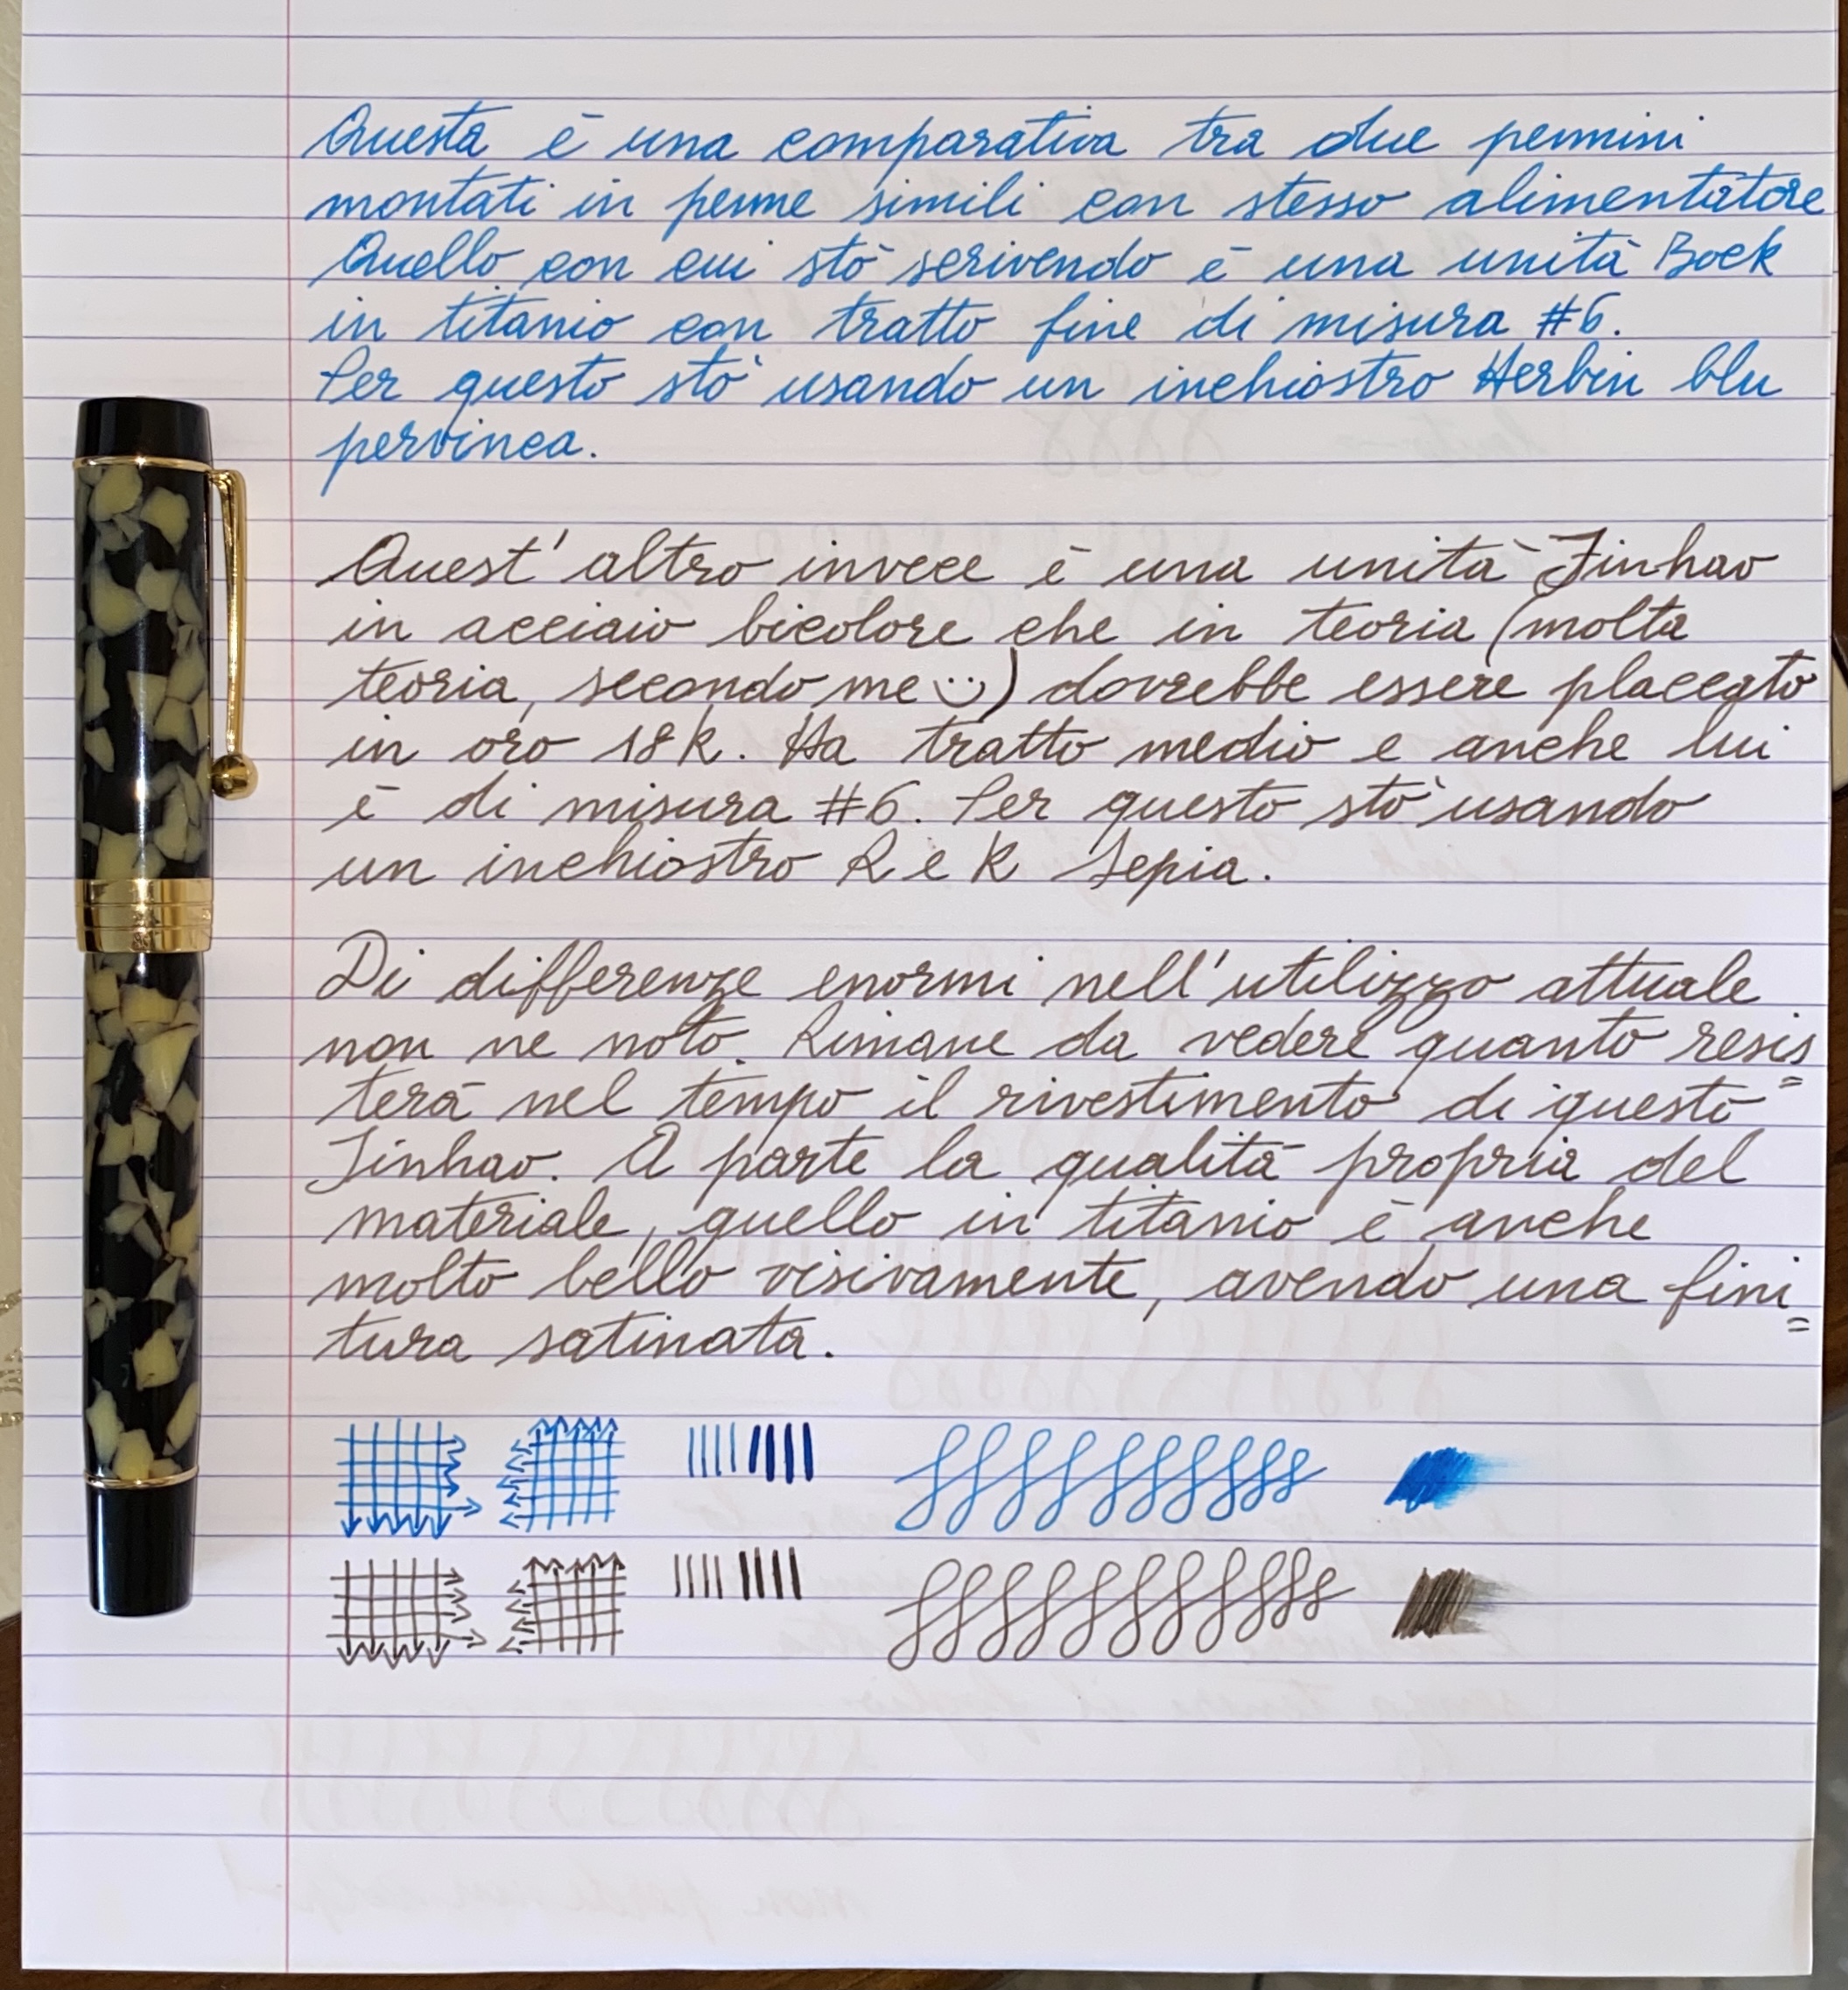 Questa è una comparativa tra due pennini
montati in penne simili con stesso alimentatore
Quello con cui stò scrivendo è una unità Bock
in titanio con tratto fine di misura #6.
Per questo stò usando un inchiostro Herbin blu
pervinca.
Quest'altro invece è una unità Jinhao
in acciaio bicolore che in teoria (molta
teoria, secondo me :)) dovrebbe essere placcato
in oro 18k. Ha tratto medio e anche lui
è di misura #6. Per questo stò usando
un inchiostro R e K Sepia.
Di differenze enormi nell'utilizzo attuale
non ne noto. Rimane da vedere quanto resis=
terà nel tempo il rivestimento di questo
Jinhao. A parte la qualità propria del
materiale, quello in titanio è anche
molto bello visivamente, avendo una fini=
tura satinata.